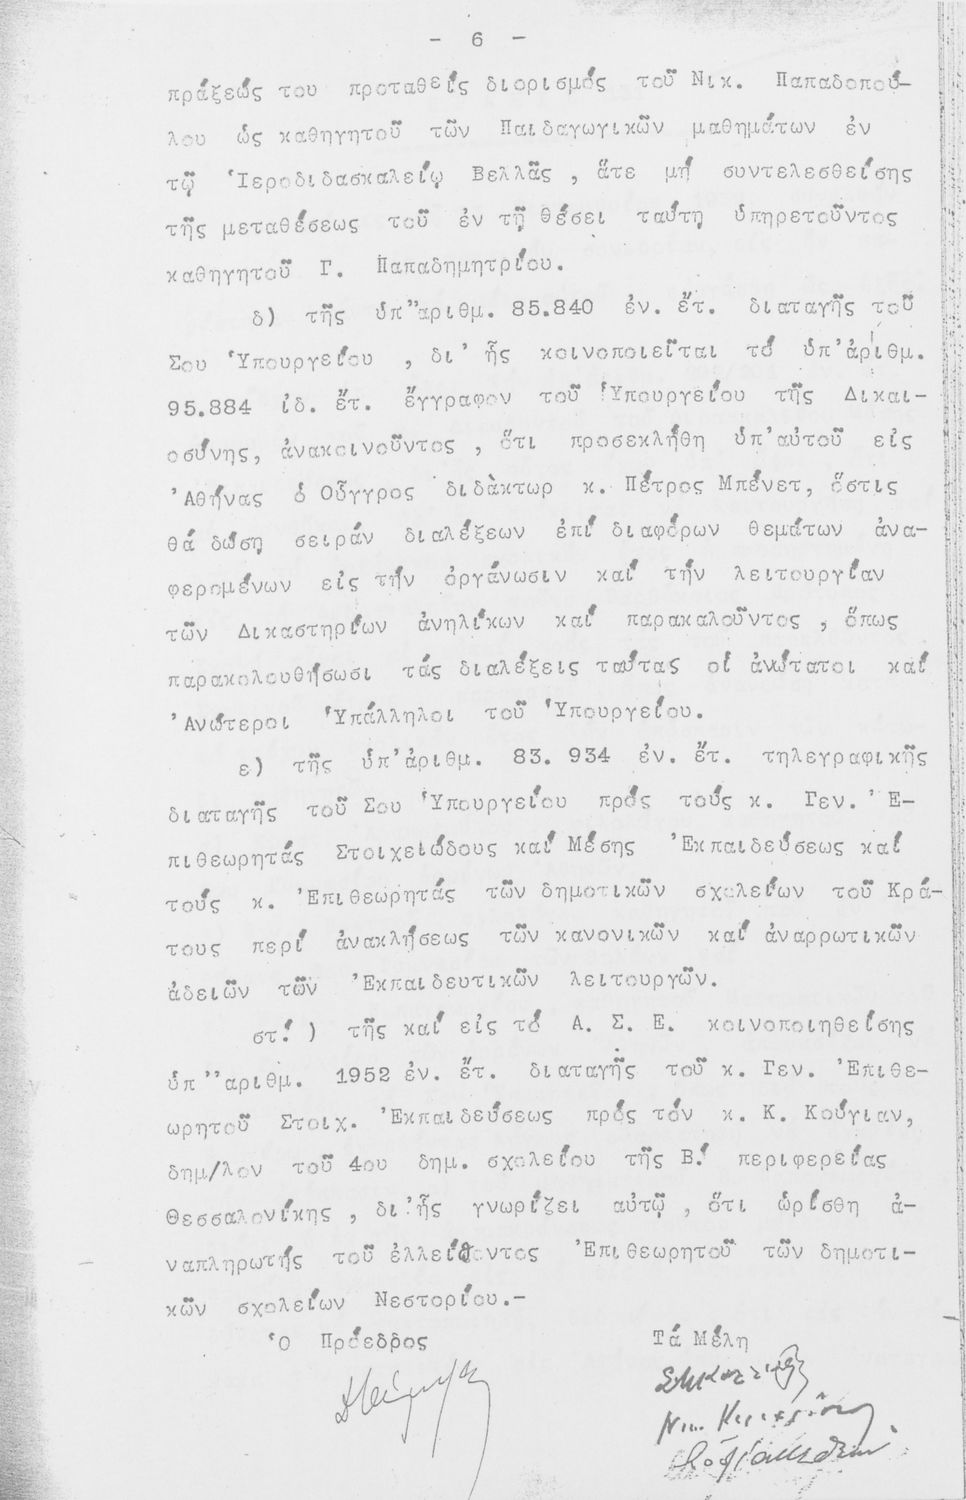 - 6 -
πράξεώς του προταθείς διορισμός τοῦ Νικ. Παπαδοπού-
λου ὡς καθηγητοῦ τῶν Παιδαγωγικῶν μαθημάτων ἐν
τῷ Ἱεροδιδασκαλείῳ Βελλᾶς, ἅτε μή συντελεσθείσης
τῆς μεταθέσεως τοῦ ἐν τῇ θέσει ταύτη ὑπηρετοῦντος
καθηγητοῦ Γ. Παπαδημητρίου.
δ) τῆς ὑπ"αριθμ. 85.840 ἐν. ἔτ. διαταγῆς τοῦ
Σου Ὑπουργείου , δι' ἧς κοινοποιεῖται τό ὑπ'ἀρίθμ.
95.884 ἰδ. ἔτ. ἔγγραφον τοῦ Ὑπουργείου τῆς Δικαι-
οσύνης, ἀνακοινοῦντος, ὅτι προσεκλήθη ὑπ'αὐτοῦ εἰς
Ἀθήνας ὁ Οὗγγρος διδάκτωρ κ. Πέτρος Μπένετ, ὅστις
θά δώσῃ σειράν διαλέξεων ἐπί διαφόρων θεμάτων ἀνα-
φερομένων εἰς τήν ὀργάνωσιν καί τήν λειτουργίαν
τῶν Δικαστηρίων ἀνηλίκων καί παρακαλοῦντος, ὅπως
παρακολουθήσωσι τάς διαλέξεις ταύτας οἱ ἀνώτατοι καί
Ἀνώτεροι Ὑπάλληλοι τοῦ Ὑπουργείου.
ε) τῆς ὑπ'ἀριθμ. 83. 934 ἐν. ἔτ. τηλεγραφικῆς
διαταγῆς τοῦ Σου Ὑπουργείου πρός τούς κ. Γεν. Ἐ-
πιθεωρητάς Στοιχειώδους καί Μέσης Ἐκπαιδεύσεως καί
τούς κ. Ἐπιθεωρητάς τῶν δημοτικῶν σχολείων τοῦ Κρά-
τους περί ἀνακλήσεως τῶν κανονικῶν καί ἀναρρωτικῶν
ἀδειῶν τῶν Ἐκπαιδευτικῶν λειτουργῶν.
στ!) τῆς καί εἰς τό Α. Σ. Ε. κοινοποιηθείσης
ὑπ"αριθμ. 1952 ἐν. ἔτ. διαταγῆς τοῦ κ. Γεν. Ἐπιθε-
ωρητοῦ Στοιχ. Ἐκπαιδεύσεως πρός τόν κ. Κ. Κούγιαν,
δημ/λον τοῦ 4ου δημ. σχολείου τῆς Β! περιφερείας
Θεσσαλονίκης, δι'ἧς γνωρίζει αὐτῷ, ὅτι ὡρίσθη ἀ-
ναπληρωτής τοῦ ἐλλείποντος Ἐπιθεωρητοῦ τῶν δημοτι-
κῶν σχολείων Νεστορίου.-
Ὁ Πρόεδρος Τά Μέλη